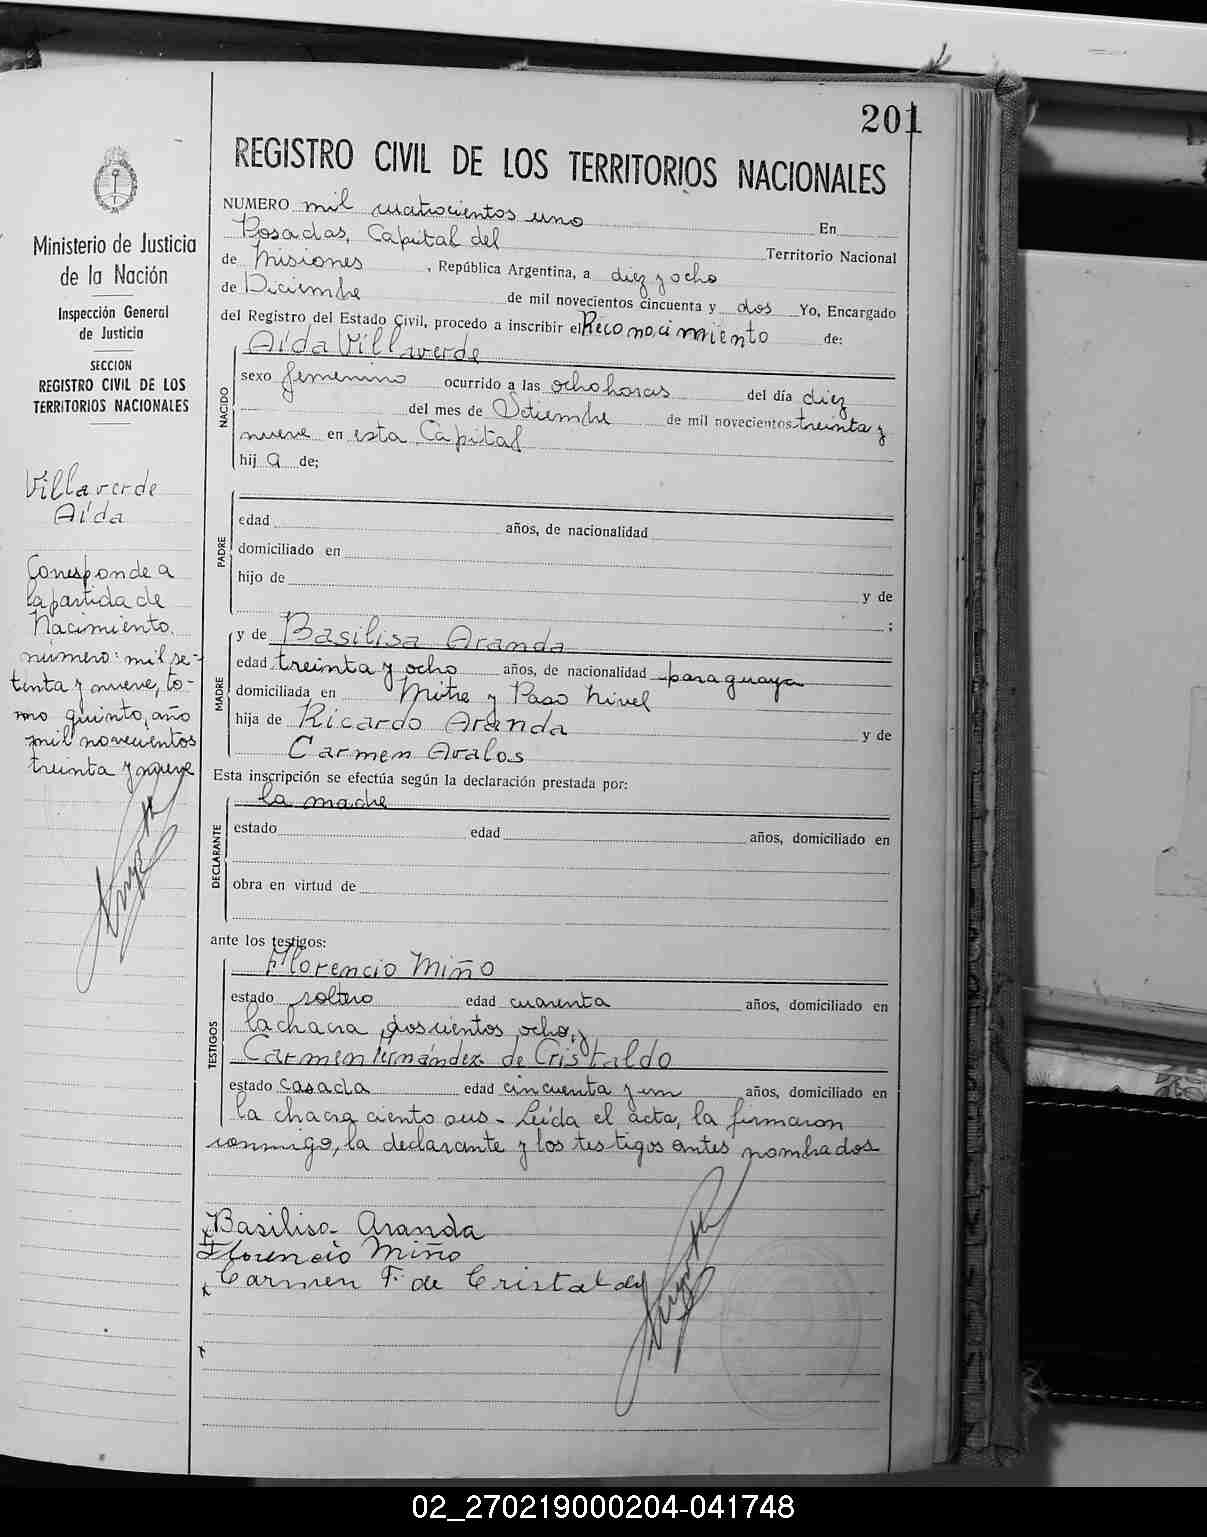 201
REGISTRO CIVIL DE LOS TERRITORIOS NACIONALES
NUMERO mil cuatrocientos uno En
Posadas, Capital del Territorio Nacional
de Misiones, República Argentina, a diez y ocho
de Diciembre de mil novecientos cincuenta y dos Yo, Encargado
del Registro del Estado Civil, procedo a inscribir el Reconocimiento de:
Aída Villaverde
NACIDO
sexo femenino ocurrido a las ocho horas del día diez
del mes de Setiembre de mil novecientos treinta y
nueve en esta Capital
hij a de;
PADRE
edad años, de nacionalidad
domiciliado en
hijo de y de
;
MADRE
y de Basilisa Aranda
edad treinta y ocho años, de nacionalidad paraguaya
domiciliada en Mitre y Paso Nivel
hija de Ricardo Aranda y de
Carmen Avalos
Esta inscripción se efectúa según la declaración prestada por:
la madre
DECLARANTE
estado edad años, domiciliado en
obra en virtud de
ante los testigos:
TESTIGOS
Florencio Miño
estado soltero edad cuarenta años, domiciliado en
la chacra doscientos ocho, y
Carmen Fernández de Cristaldo
estado casada edad cincuenta y un años, domiciliado en
la chacra ciento seis - Leída el acta, la firmaron
conmigo, la declarante y los testigos antes nombrados
Basilisa Aranda
Florencio Miño
Carmen F. de Cristaldo
Ministerio de Justicia
de la Nación
Inspección General
de Justicia
SECCION
REGISTRO CIVIL DE LOS
TERRITORIOS NACIONALES
Villaverde
Aída
Corresponde a
la partida de
Nacimiento.
número: mil se-
tenta y nueve, to-
mo quinto, año
mil novecientos
treinta y nueve
02_270219000204-041748